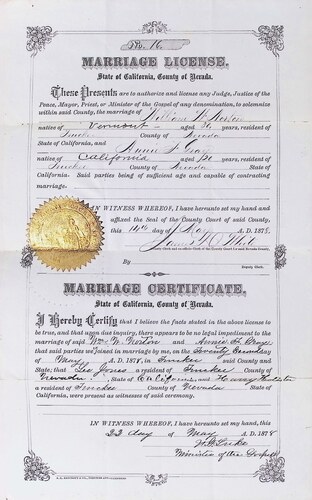 No. 16
MARRIAGE LICENSE.
State of California, County of Nevada.
These Presents are to authorize and license any Judge, Justice of the
Peace, Mayor, Priest, or Minister of the Gospel of any denomination, to solemnize
within said County, the marriage of William N.
native of Vermont aged years, resident of
Truckee County of Nevada
State of California, and Annie F.
native of California aged 21 years, resident of
Truckee County of Nevada State of
California. Said parties being of sufficient age and capable of contracting
marriage.
IN WITNESS WHEREOF, I have hereunto set my hand and
affixed the Seal of the County Court of said County,
this 14th day of May A. D. 1878.
James
By
Deputy Clerk.
MARRIAGE CERTIFICATE.
State of California, County of Nevada.
I Hereby Certify that I believe the facts stated in the above license to
be true, and that upon due inquiry, there appears to be no legal impediment to the
marriage of said Wm N. and Annie F.
that said parties were joined in marriage by me, on the Twenty Second
of May A. D. 1878, in Truckee said County and
State; that Jones a resident of Truckee County of
Nevada State of California and Henry
a resident of Truckee County of Nevada State of
California, were present as witnesses of said ceremony.
IN WITNESS WHEREOF, I have hereunto set my hand, this
22 day of May A. D. 1878
Minister of the Gospel